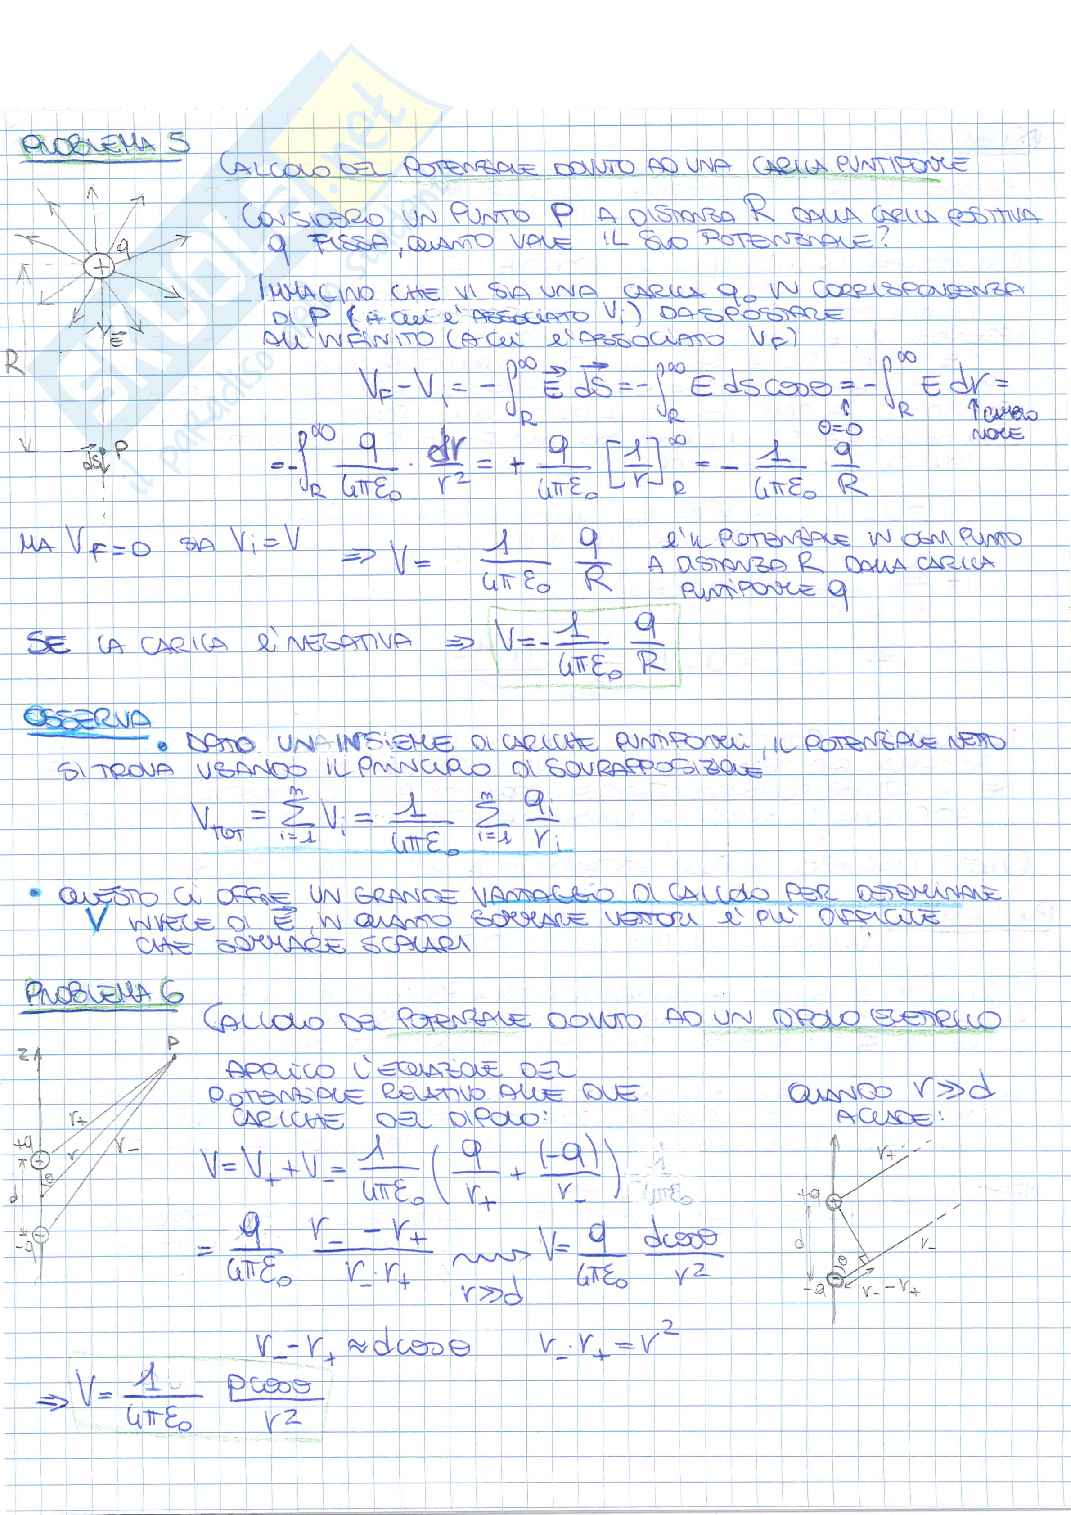 PROBLEMA 5
CALCOLO DEL POTENZIALE DOVUTO AD UNA CARICA PUNTIFORME
CONSIDERO UN PUNTO P A DISTANZA R DALLA CARICA POSITIVA
q FISSA, QUANTO VALE IL SUO POTENZIALE?
IMMAGINO CHE VI SIA UNA CARICA q₀ IN CORRISPONDENZA
DI P (A CUI E' ASSOCIATO Vi) DA SPOSTARE
ALL'INFINITO (A CUI E' ASSOCIATO VF)
q
+
E⃗
R
ds⃗ P
VF - Vi = -∫_R^∞ E⃗ ds⃗ = -∫_R^∞ E ds cosθ = -∫_R^∞ E dr =
↑ θ=0
= -∫_R^∞ q/(4πε₀) · dr/r² = + q/(4πε₀) [1/r]_R^∞ = - 1/(4πε₀) q/R
MA VF = 0 SIA Vi = V ⇒ V = 1/(4πε₀) q/R E' IL POTENZIALE IN OGNI PUNTO
A DISTANZA R DALLA CARICA
PUNTIFORME q
SE LA CARICA E' NEGATIVA ⇒ V = - 1/(4πε₀) q/R
OSSERVA
• DATO UN INSIEME DI CARICHE PUNTIFORMI, IL POTENZIALE NETTO
SI TROVA USANDO IL PRINCIPIO DI SOVRAPPOSIZIONE
V_TOT = Σ_{i=1}^n Vi = 1/(4πε₀) Σ_{i=1}^n qi/ri
• QUESTO CI OFFRE UN GRANDE VANTAGGIO DI CALCOLO PER DETERMINARE
V INVECE DI E⃗, IN QUANTO SOMMARE VETTORI E' PIU' DIFFICILE
CHE SOMMARE SCALARI
PROBLEMA 6
CALCOLO DEL POTENZIALE DOVUTO AD UN DIPOLO ELETTRICO
z
P
r+
r
r-
+q
θ
d
-q
APPLICO L'EQUAZIONE DEL
POTENZIALE RELATIVO ALLE DUE
CARICHE DEL DIPOLO:
QUANDO r≫d
ACCADE:
V = V+ + V- = 1/(4πε₀) (q/r+ + (-q)/r-)
= q/(4πε₀) (r- - r+)/(r- · r+) r≫d V = q/(4πε₀) dcosθ/r²
r+
+q
d
θ
r-
-q
r- - r+
r- - r+ ≈ dcosθ r- · r+ = r²
⇒ V = 1/(4πε₀) pcosθ/r²
SKUOLA.net
il paradiso